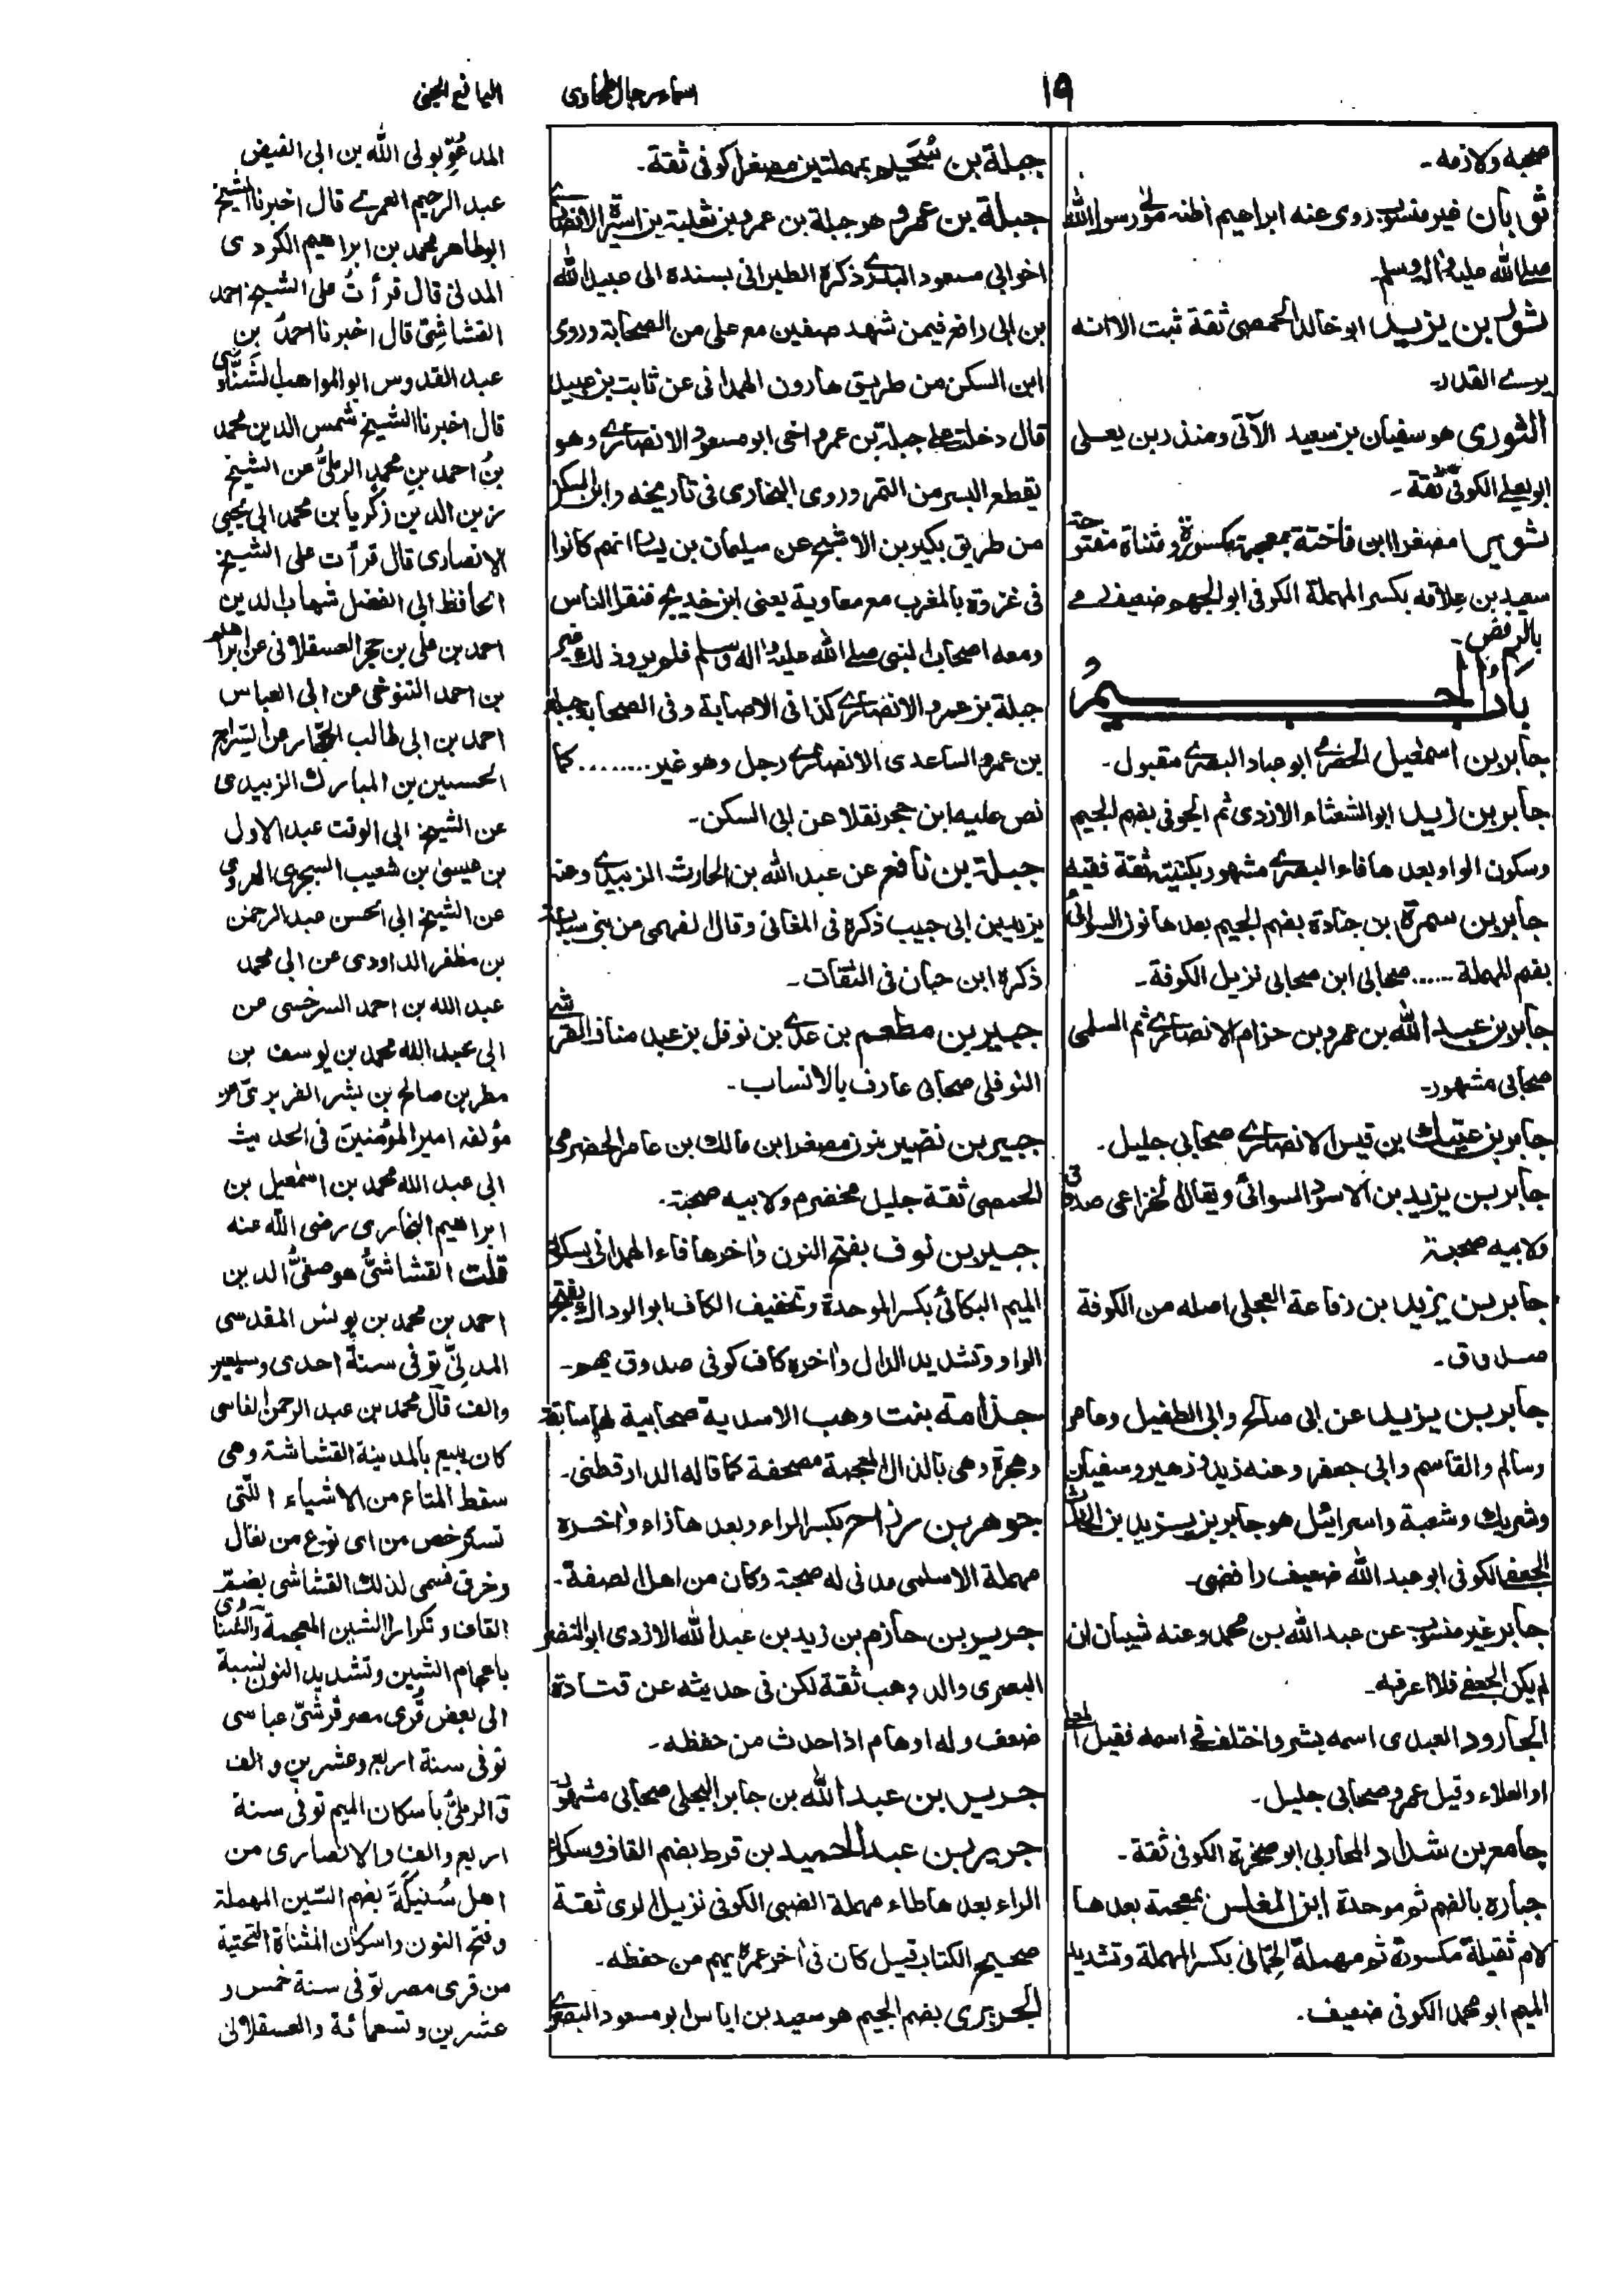 ١٩
اسماء رجال الطحاوى
اليانع الجنى
صحبه ولازمه ـ
ثوبان غير منسوب روى عنه ابراهيم اظنه مولى رسول الله
صلے الله عليه واله وسلم ـ
ثور بن يزيد ابو خالد الحمصى ثقة ثبت الا انه
يرے القدر ـ
الثورى هو سفيان بن سعيد الآتى ومنذر بن يعلى
ابو يعلے الكوفى ثقة ـ
ثوير مصغرا ابن فاختة بمعجمة مكسورة ومثناة مفتوحة
سعيد بن علاقه بكسر المهملة الكوفى ابو الجهم ضعيف رمے
بالرفض ـ
باب الجيم
جابر بن اسمٰعيل الحضرمے ابو عباد البصرے مقبول ـ
جابر بن زيد ابو الشعثاء الازدى ثم الجوفى بفهم الجيم
وسكون الواو بعدها فاء البصرے مشهور بكنيته ثقة فقيه
جابر بن سمرة بن جنادة بضم الجيم بعدها نون السوائى
بضم المهملة ...... صحابى ابن صحابى نزيل الكوفة ـ
جابر بن عبد الله بن عمرو بن حزام الانصارے ثم السلمى
صحابى مشهور ـ
جابر بن عتيك بن قيس الانصارے صحابى جليل ـ
جابر بن يزيد بن الاسود السوائى ويقال الخزاعى صدوق
ولابيه صحبة
جابر بن يزيد بن رفاعة العجلى اصله من الكوفة
صدوق ـ
جابر بن يزيد عن ابى صالح وابى الطفيل وعامر
وسالم والقاسم وابى جعفر وعنه زيد و زهير وسفيان
وشريك وشعبة واسرائيل هو جابر بن يزيد بن الحارث
الجعفے الكوفى ابو عبد الله ضعيف رافضى ـ
جابر غير منسوب عن عبد الله بن محمد وعنه شيبان ان
لم يكن الجعفے فلا اعرفه ـ
الجارود العبدى اسمه بشر واختلف فے اسمه فقيل المعلے
او العلاء وقيل عمرو صحابى جليل ـ
جامع بن شداد المحاربى ابو صخرة الكوفى ثقة ـ
جباره بالضم ثم موحدة ابن المغلس بمعجمة بعدها
لام ثقيلة مكسورة ثم مهملة الحمّانى بكسر المهملة وتشديد
الميم ابو محمد الكوفى ضعيف ـ
جبلة بن سُحَيم بمهملتين مصغرا كوفى ثقة ـ
جبلة بن عمرو هو جبلة بن عمرو بن ثعلبة بن اسيرة الانصارے
اخو ابى مسعود البدرے ذكرة الطبرانى بسنده الى عبيد الله
بن ابى رافع فيمن شهد صفين مع على من الصحابة وروى
ابن السكن من طريق هارون الهمدانى عن ثابت بن عبيد
قال دخلت علے جبلة بن عمرو اخى ابو مسعود الانصارے وهو
يقطع البسر من التمر وروى البخارى فى تاريخه وابن السكن
من طريق بكير بن الاشج عن سليمان بن يسار انهم كانوا
فى غزوة بالمغرب مع معاوية يعنى ابن خديج فنفر الناس
ومعه اصحاب النبى صلے الله عليه واله وسلم فلم يرد ذلك غير
جبلة بن عمرو الانصارے كذا فى الاصابة وفى الصحابة جبلة
بن عمرو الساعدى الانصارے رجل وهو غير ........ كما
نص عليه ابن حجر نقلا عن ابى السكن ـ
جبلة بن نافع عن عبد الله بن الحارث الزبيدے وعنه
يزيد بن ابى حبيب ذكره فى المغانى وقال الفهمى من بنى سباعة
ذكره ابن حبان فى الثقات ـ
جبير بن مطعم بن عدے بن نوفل بن عبد مناف القرشے
النوفلى صحابى عارف بالانساب ـ
جبير بن نضير بنون مصغرا ابن مالك بن عامر الحضرمى
الحمصى ثقة جليل مخضرم ولابيه صحبة ـ
جبير بن نوف بفتح النون واخرها فاء الهمدانى بسكون
الميم البكائى بكسر الموحدة وتخفيف الكاف ابو الوداك بفتح
الواو وتشديد الدال واخره كاف كوفى صدوق يهم ـ
جذامة بنت وهب الاسدية صحابية لها سابقة
وهجرة وهى بالذال المعجمة مصحفة كما قاله الدارقطنى ـ
جوهر بن رزاح بكسر الراء وبعدها زاء واخره
مهملة الاسلمى مدنى له صحبة وكان من اهل الصفة ـ
جرير بن حازم بن زيد بن عبد الله الازدى ابو النضر
البصرى والد وهب ثقة لكن فى حديثه عن قتادة
ضعف وله اوهام اذا حدث من حفظه ـ
جرير بن عبد الله بن جابر البجلى صحابى مشهور
جرير بن عبد الحميد بن قرط بضم القاف وسكون
الراء بعدها طاء مهملة الضبى الكوفى نزيل الرى ثقة
صحيح الكتاب قيل كان فى اخر عمره يهم من حفظه ـ
الجريرى بضم الجيم هو سعيد بن اياس ابو مسعود البصرے
المدعُوّ بولى الله بن ابى الفيض
عبد الرحيم العمرے قال اخبرنا الشيخ
ابو طاهر محمد بن ابراهيم الكردى
المدنى قال قرأتُ على الشيخ احمد
القشاشِىّ قال اخبرنا احمدُ بن
عبد القدوس ابو المواهب الشنّاوى
قال اخبرنا الشيخ شمس الدين محمد
بنُ احمد بنِ محمدٍ الرملىُّ عن الشيخ
زين الدين زكريا بن محمد ابى يحيى
الانصارى قال قرأت على الشيخ
الحافظ ابى الفضل شهاب الدين
احمد بن على بن حجر العسقلانى عن ابراهيم
بن احمد التنوخى عن ابى العباس
احمد بن ابى طالب الحجّار عن السّراج
الحسين بن المبارك الزبيدى
عن الشيخ ابى الوقت عبد الاول
بن عيسىٰ بن شعيب السجزى الهروى
عن الشيخ ابى الحسن عبد الرحمٰن
بن مظفر الداودى عن ابى محمد
عبد الله بن احمد السرخسى عن
ابى عبد الله محمد بن يوسف بن
مطر بن صالح بن بشر الفربرىّ عن
مؤلفه امير المؤمنين فى الحديث
ابى عبد الله محمد بن اسمٰعيل بن
ابراهيم البخارى رضى الله عنه
قلت القشاشىُّ هو صفىُّ الدين
احمد بن محمد بن يونس المقدسى
المدنىّ توفى سنة احدى وسبعين
والف قال محمد بن عبد الرحمن الفاسى
كان يبيع بالمدينة القشاشة وهى
سقط المتاع من الاشياء اللّتى
تسترخص من اى نوع من نعال
وخرق فسمى لذلك القشاشى بضم
القاف وتكرار الشين المعجمة والشناوى
باعجام الشين وتشديد النون نسبة
الى بعض قُرى مصر قرشىّ عباسى
توفى سنة اربع وعشرين والف
و الرملىُّ باسكان الميم توفى سنة
اربع والف والانصارى من
اهل سُنيكَةَ بضم السّين المهملة
وفتح النون واسكان المثناة التحتية
من قرى مصر توفى سنة خمس و
عشرين وتسعمائة والعسقلانى